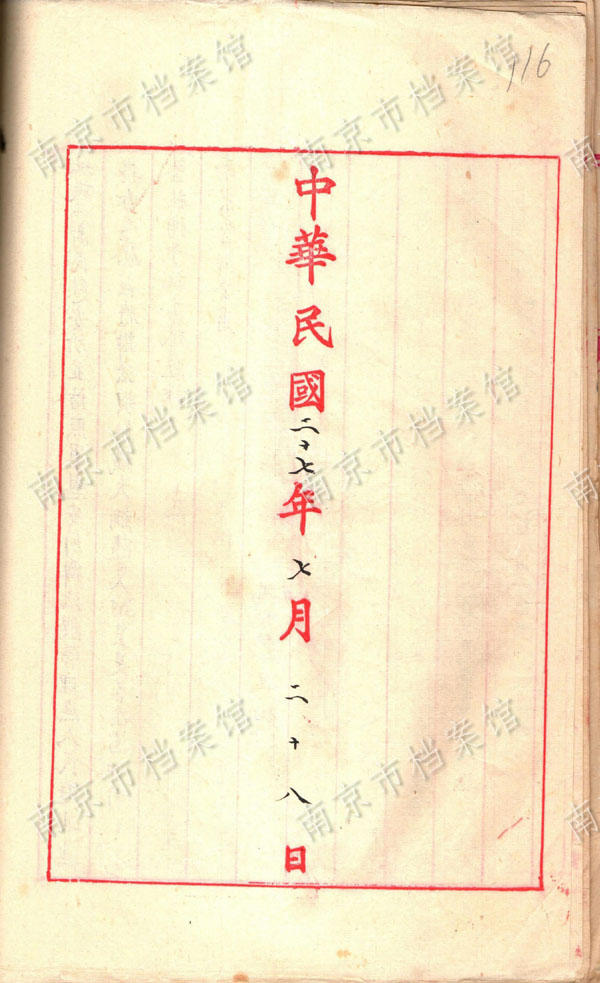 116
中華民國二十七年七月二十八日
南京市档案馆
南京市档案馆
南京市档案馆
南京市档案馆
南京市档案馆
南京市档案馆